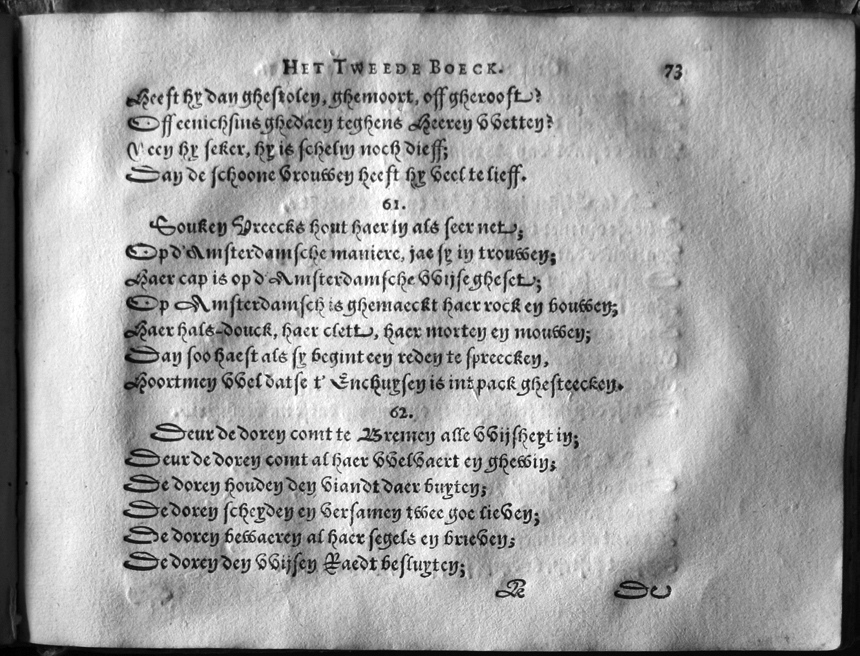 HET TWEEDE BOECK. 73
Heeft hy dan ghestolen, ghemoort, off gherooft?
Off eenichsins ghedaen teghens Heeren Wetten?
Neen hy seker, hy is schelm noch dieff;
Dan de schoone Vrouwen heeft hy veel te lieff.
61.
Souken Vreecks hout haer in als seer net;
Op d'Amsterdamsche maniere, jae sy in trouwen;
Haer cap is op d'Amsterdamsche Wijse gheset;
Op Amsterdamsch is ghemaeckt haer rock en bouwen;
Haer hals-douck, haer clett, haer morten en mouwen;
Dan soo haest als sy begint een reden te spreecken,
Hoortmen Wel datse t' Enchuysen is int pack ghesteecken.
62.
Deur de doren comt te Bremen alle Wijsheyt in;
Deur de doren comt al haer Welvaert en ghewin;
De doren houden den viandt daer buyten;
De doren scheyden en versamen twee goe lieven;
De doren bewaeren al haer segels en brieven;
De doren den Wijsen Raedt besluyten;
De